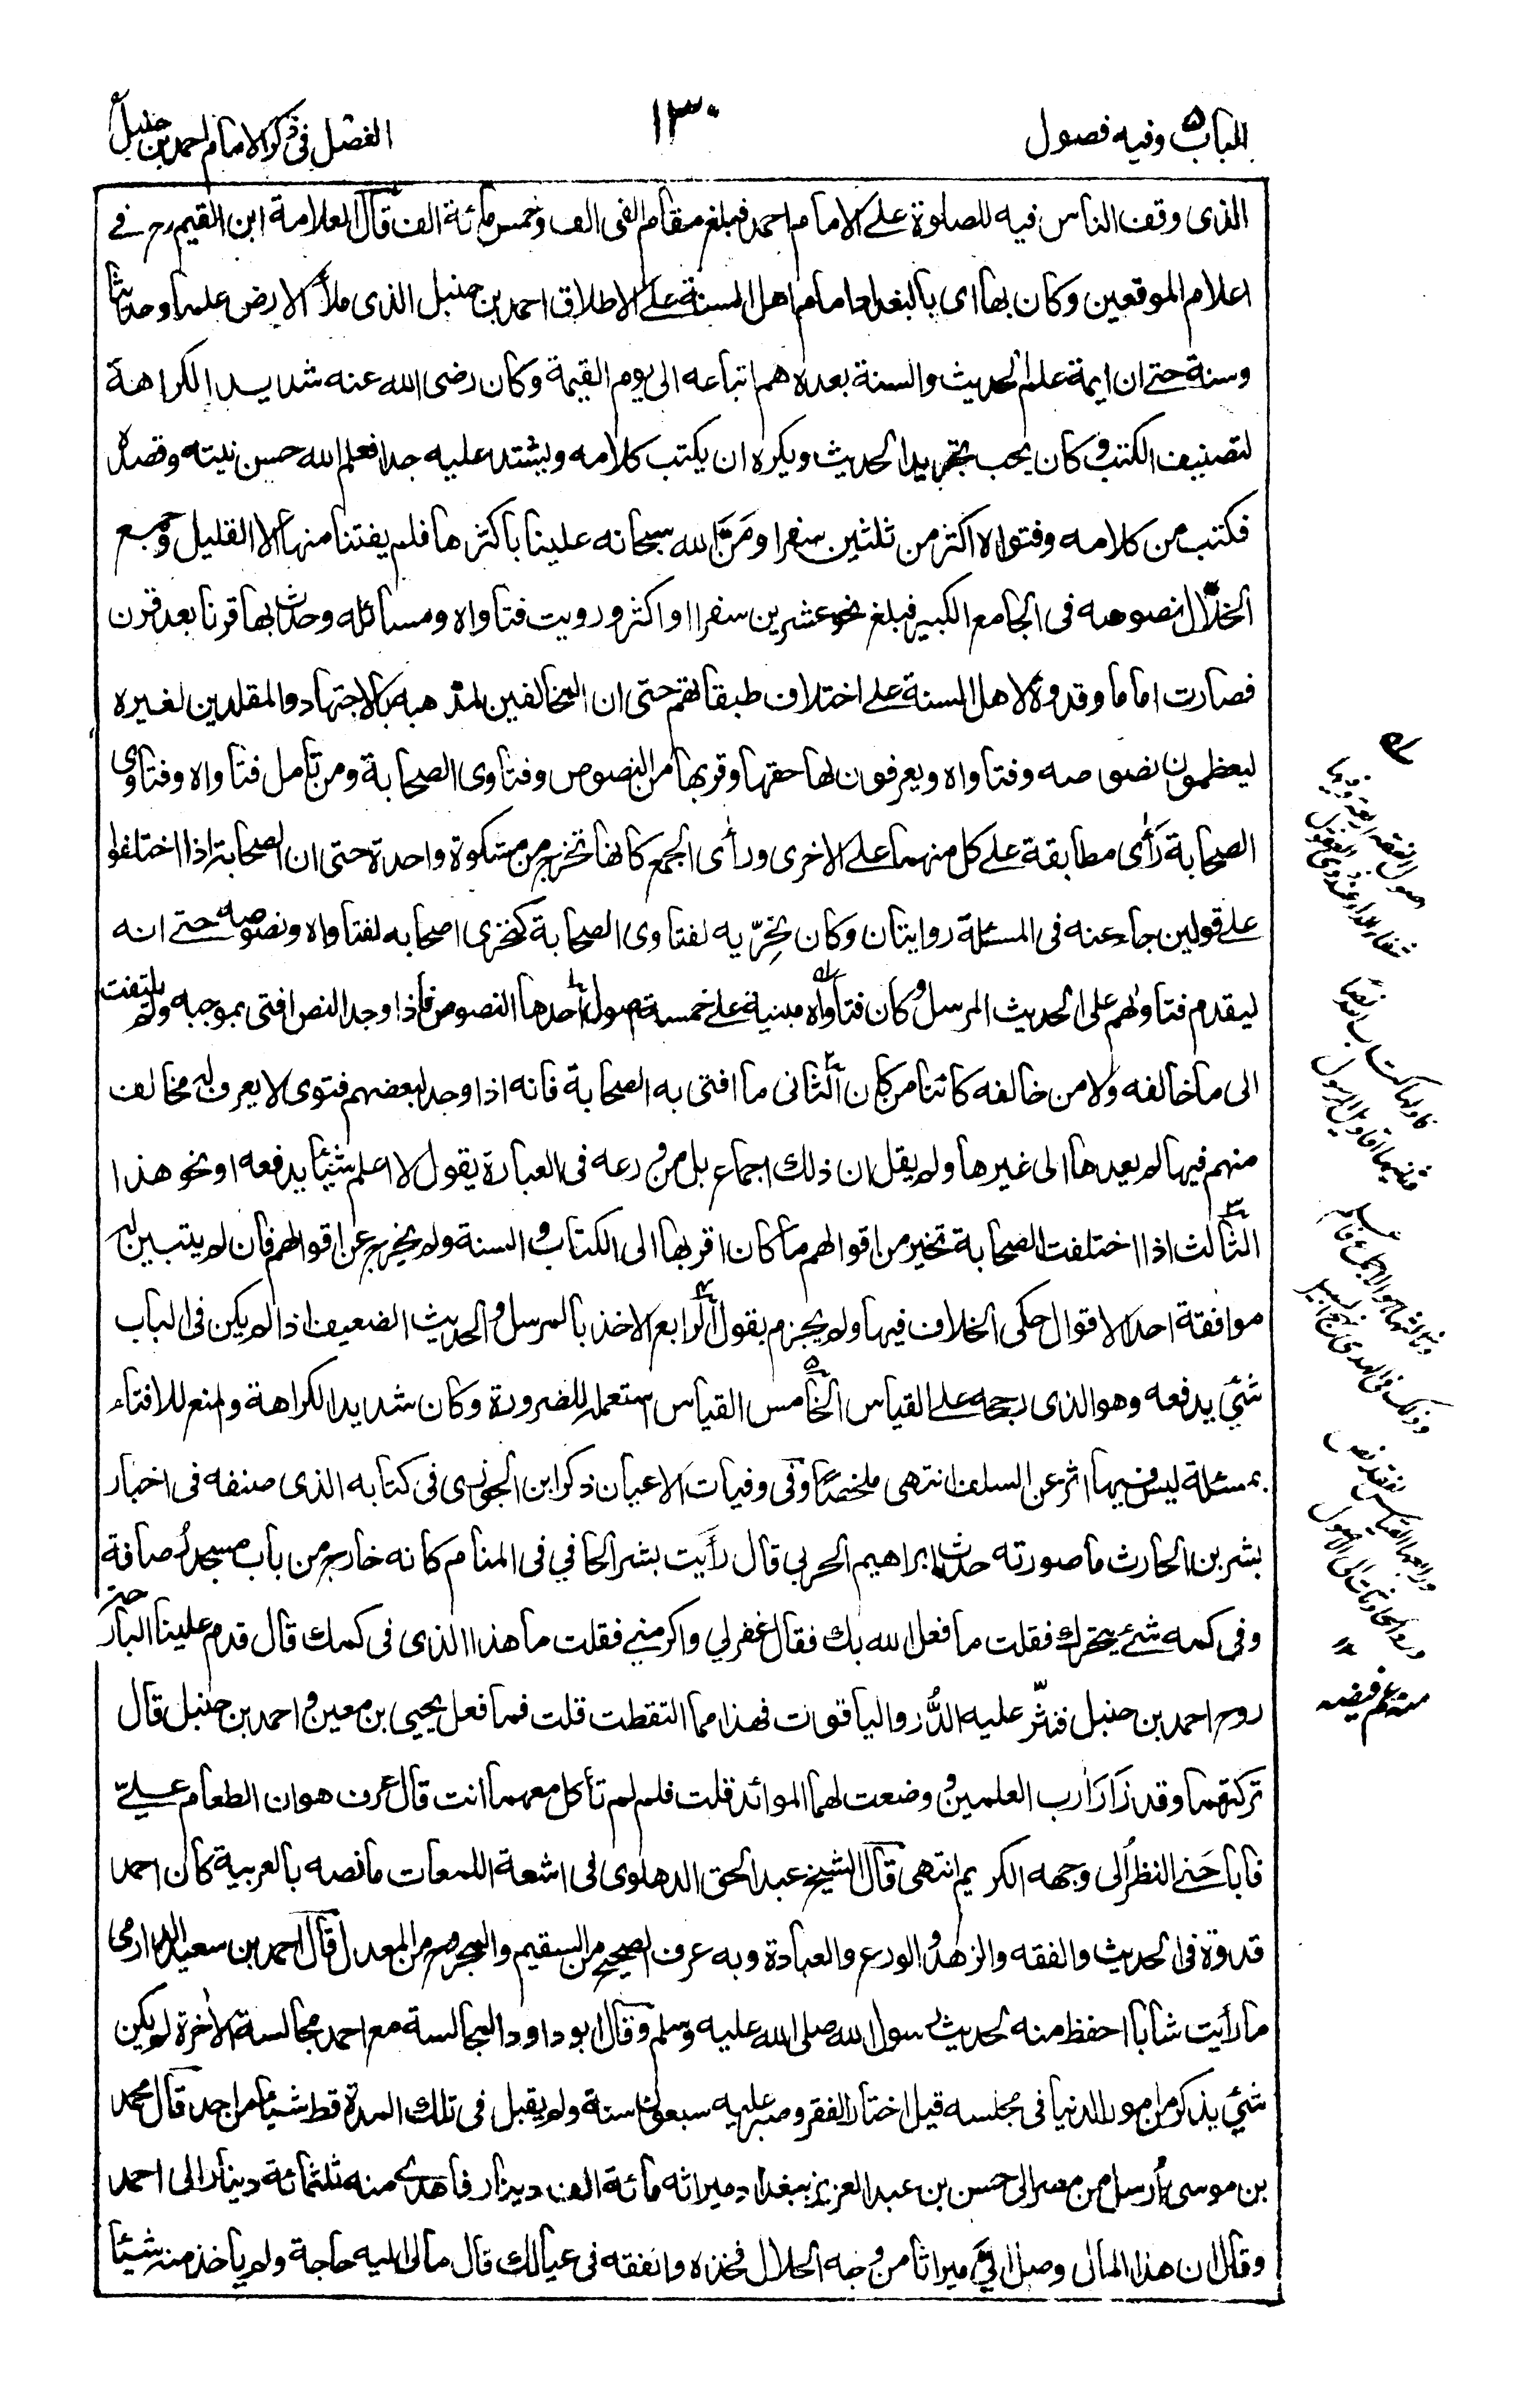 الباب ۵ وفيه فصول
۱۳۰
الفصل في ذكر الامام احمد بن حنبل
الذى وقف الناس فيه للصلوة على الامام احمد فبلغ مقام الفى الف وخمس مائة الف قال العلامة ابن القيم رح في
اعلام الموقعين وكان بها اى بالبغداد امام اهل السنة على الاطلاق احمد بن حنبل الذى ملأ الارض علما وحديثا
وسنة حتى ان ايمة علم الحديث والسنة بعده هم اتباعه الى يوم القيمة وكان رضى الله عنه شديد الكراهة
لتصنيف الكتب وكان يحب تجريد الحديث ويكره ان يكتب كلامه ويشتد عليه جدا فعلم الله حسن نيته وقصده
فكتب من كلامه وفتواه اكثر من ثلثين سفرا ومَنَّ الله سبحانه علينا باكثرها فلم يفتنا منها الا القليل وجمع
الخلال نصوصه فى الجامع الكبير فبلغ نحو عشرين سفرا او اكثر ورويت فتاواه ومسائله وحدث بها قرنا بعد قرن
فصارت اماما وقدوة لاهل السنة على اختلاف طبقاتهم حتى ان المخالفين لمذهبه بالاجتهاد والمقلدين لغيره
ليعظمون نصوصه وفتاواه ويعرفون لها حقها وقربها من النصوص وفتاوى الصحابة ومن تأمل فتاواه وفتاوى
الصحابة رَأى مطابقة على كل منهما على الاخرى ورأى الجمع كانها تخرج من مشكوة واحدة حتى ان الصحابة اذا اختلفوا
على قولين جاء عنه فى المسئلة روايتان وكان تحرّيه لفتاوى الصحابة كتحرى اصحابه لفتاواه ونصوصه حتى انه
ليقدم فتاواهم على الحديث المرسل وكان فتاواه مبنية على خمسة اصول احدها النصوص فاذا وجد النص افتى بموجبه ولم يلتفت
الى ما خالفه ولا من خالفه كائنا من كان الثانى ما افتى به الصحابة فانه اذا وجد لبعضهم فتوى لا يعرف له مخالف
منهم فيها لم يعدها الى غيرها ولم يقل ان ذلك اجماع بل من ورعه فى العبارة يقول لا اعلم شيئا يدفعه او نحو هذا
الثالث اذا اختلفت الصحابة تخير من اقوالهم ما كان اقربها الى الكتاب والسنة ولم يخرج عن اقوالهم فان لم يتبين له
موافقة احد الاقوال حكى الخلاف فيها ولم يجزم بقول الرابع الاخذ بالمرسل والحديث الضعيف اذا لم يكن فى الباب
شئ يدفعه وهو الذى رجحه على القياس الخامس القياس استعمله للضرورة وكان شديد الكراهة والمنع للافتاء
بمسئلة ليس فيها اثر عن السلف انتهى ملخصًا وفى وفيات الاعيان ذكر ابن الجوزى فى كتابه الذى صنفه فى اخبار
بشر بن الحارث ما صورته حدث ابراهيم الحربي قال رأيت بشر الحافي فى المنام كانه خارج من باب مسجد الرصافة
وفى كمه شئ يتحرك فقلت ما فعل الله بك فقال غفر لي واكرمني فقلت ما هذا الذى فى كمك قال قدم علينا البارحة
روح احمد بن حنبل فنثّر عليه الدُّر والياقوت فهذا مما التقطت قلت فما فعل يحيى بن معين واحمد بن حنبل قال
تركتهما وقد زَارَا رب العلمين ووضعت لهما الموائد قلت فلم لم تأكل معهما انت قال عرف هوان الطعام علىّ
فاباحَني النظر الى وجهه الكريم انتهى قال الشيخ عبد الحق الدهلوى فى اشعة اللمعات ما نصه بالعربية كان احمد
قدوة فى الحديث والفقه والزهد والورع والعبادة وبه عرف الصحيح من السقيم والمجروح من المعدل قال احمد بن سعيد الدارمى
ما رأيت شابا احفظ منه لحديث رسول الله صلى الله عليه وسلم وقال ابو داود المجالسة مع احمد مجالسة الاخرة لم يكن
شئ يذكر من امور الدنيا فى مجلسه قيل اختار الفقر وصبر عليه سبعون سنة ولم يقبل فى تلك المدة قط شيئا من احد قال محمد
بن موسى ارسل من مصر الى حسن بن عبد العزيز ببغداد ميراثه مائة الف دينار فاهدى منه ثلثمائة دينار الى احمد
وقال ان هذا المال وصل الىّ ميراثا من وجه الحلال فخذه وانفقه فى عيالك قال مالى اليه حاجة ولم ياخذ منه شيئا